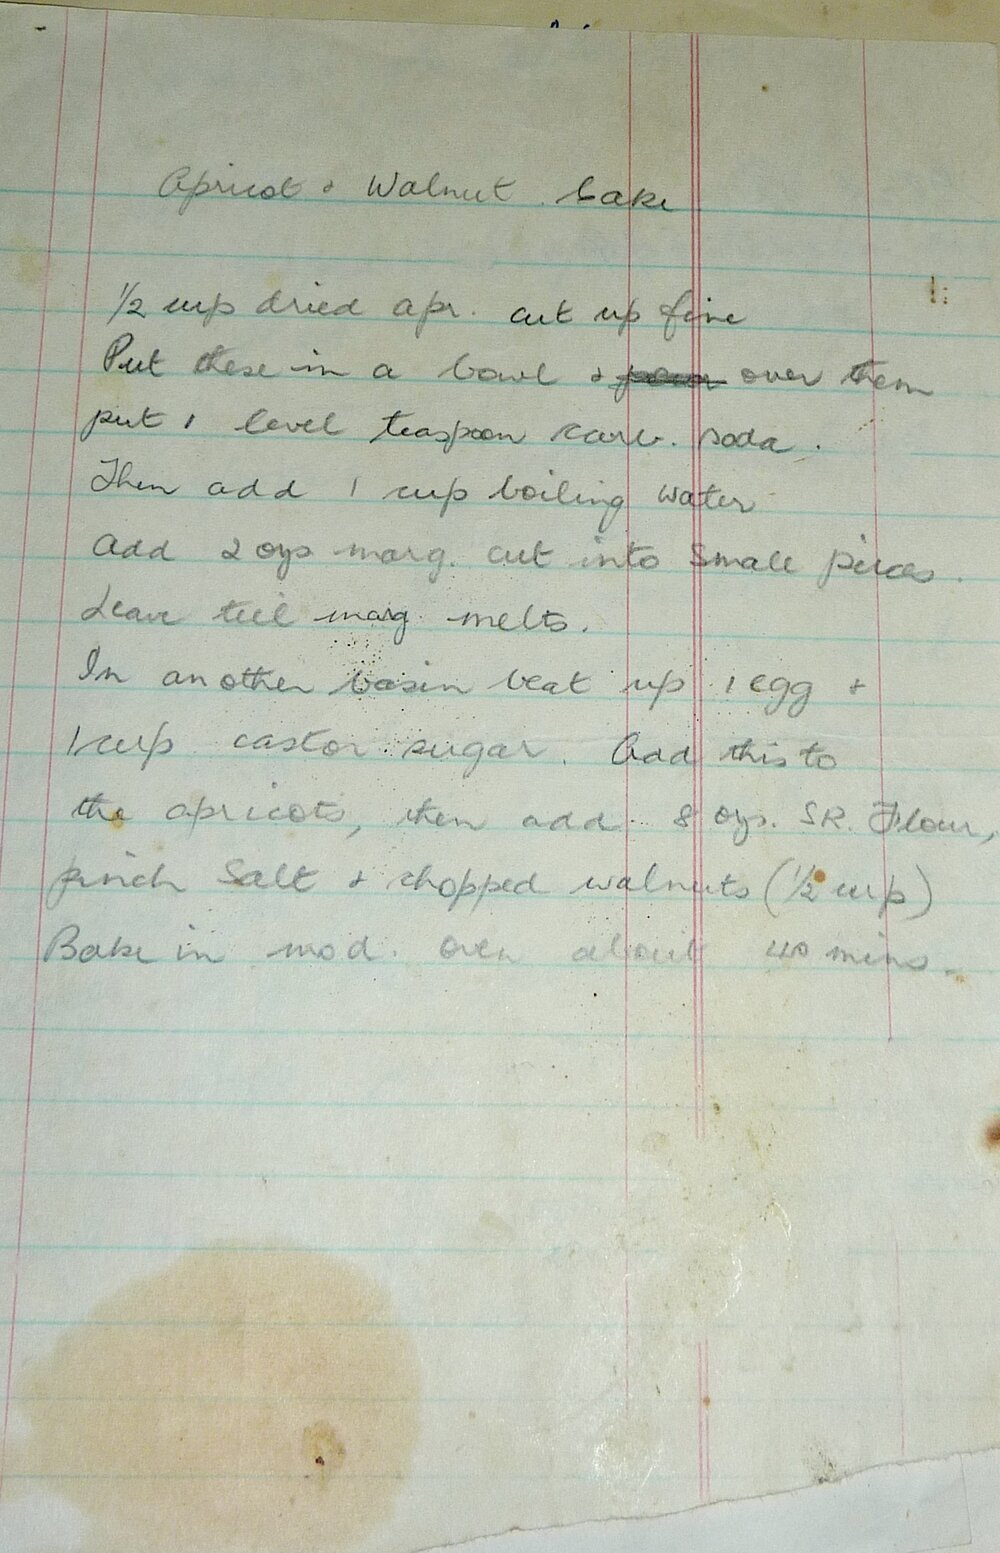 Apricot & Walnut Cake
1/2 cup dried apr. cut up fine
Put these in a bowl & over them
put 1 level teaspoon carb. soda.
Then add 1 cup boiling water
Add 2 ozs marg. cut into small pieces.
Leave till marg melts.
In another basin beat up 1 egg &
1 cup castor sugar. Add this to
the apricots, then add 8 ozs. SR. Flour,
pinch Salt & chopped walnuts (1/2 cup)
Bake in mod. oven about 40 mins.